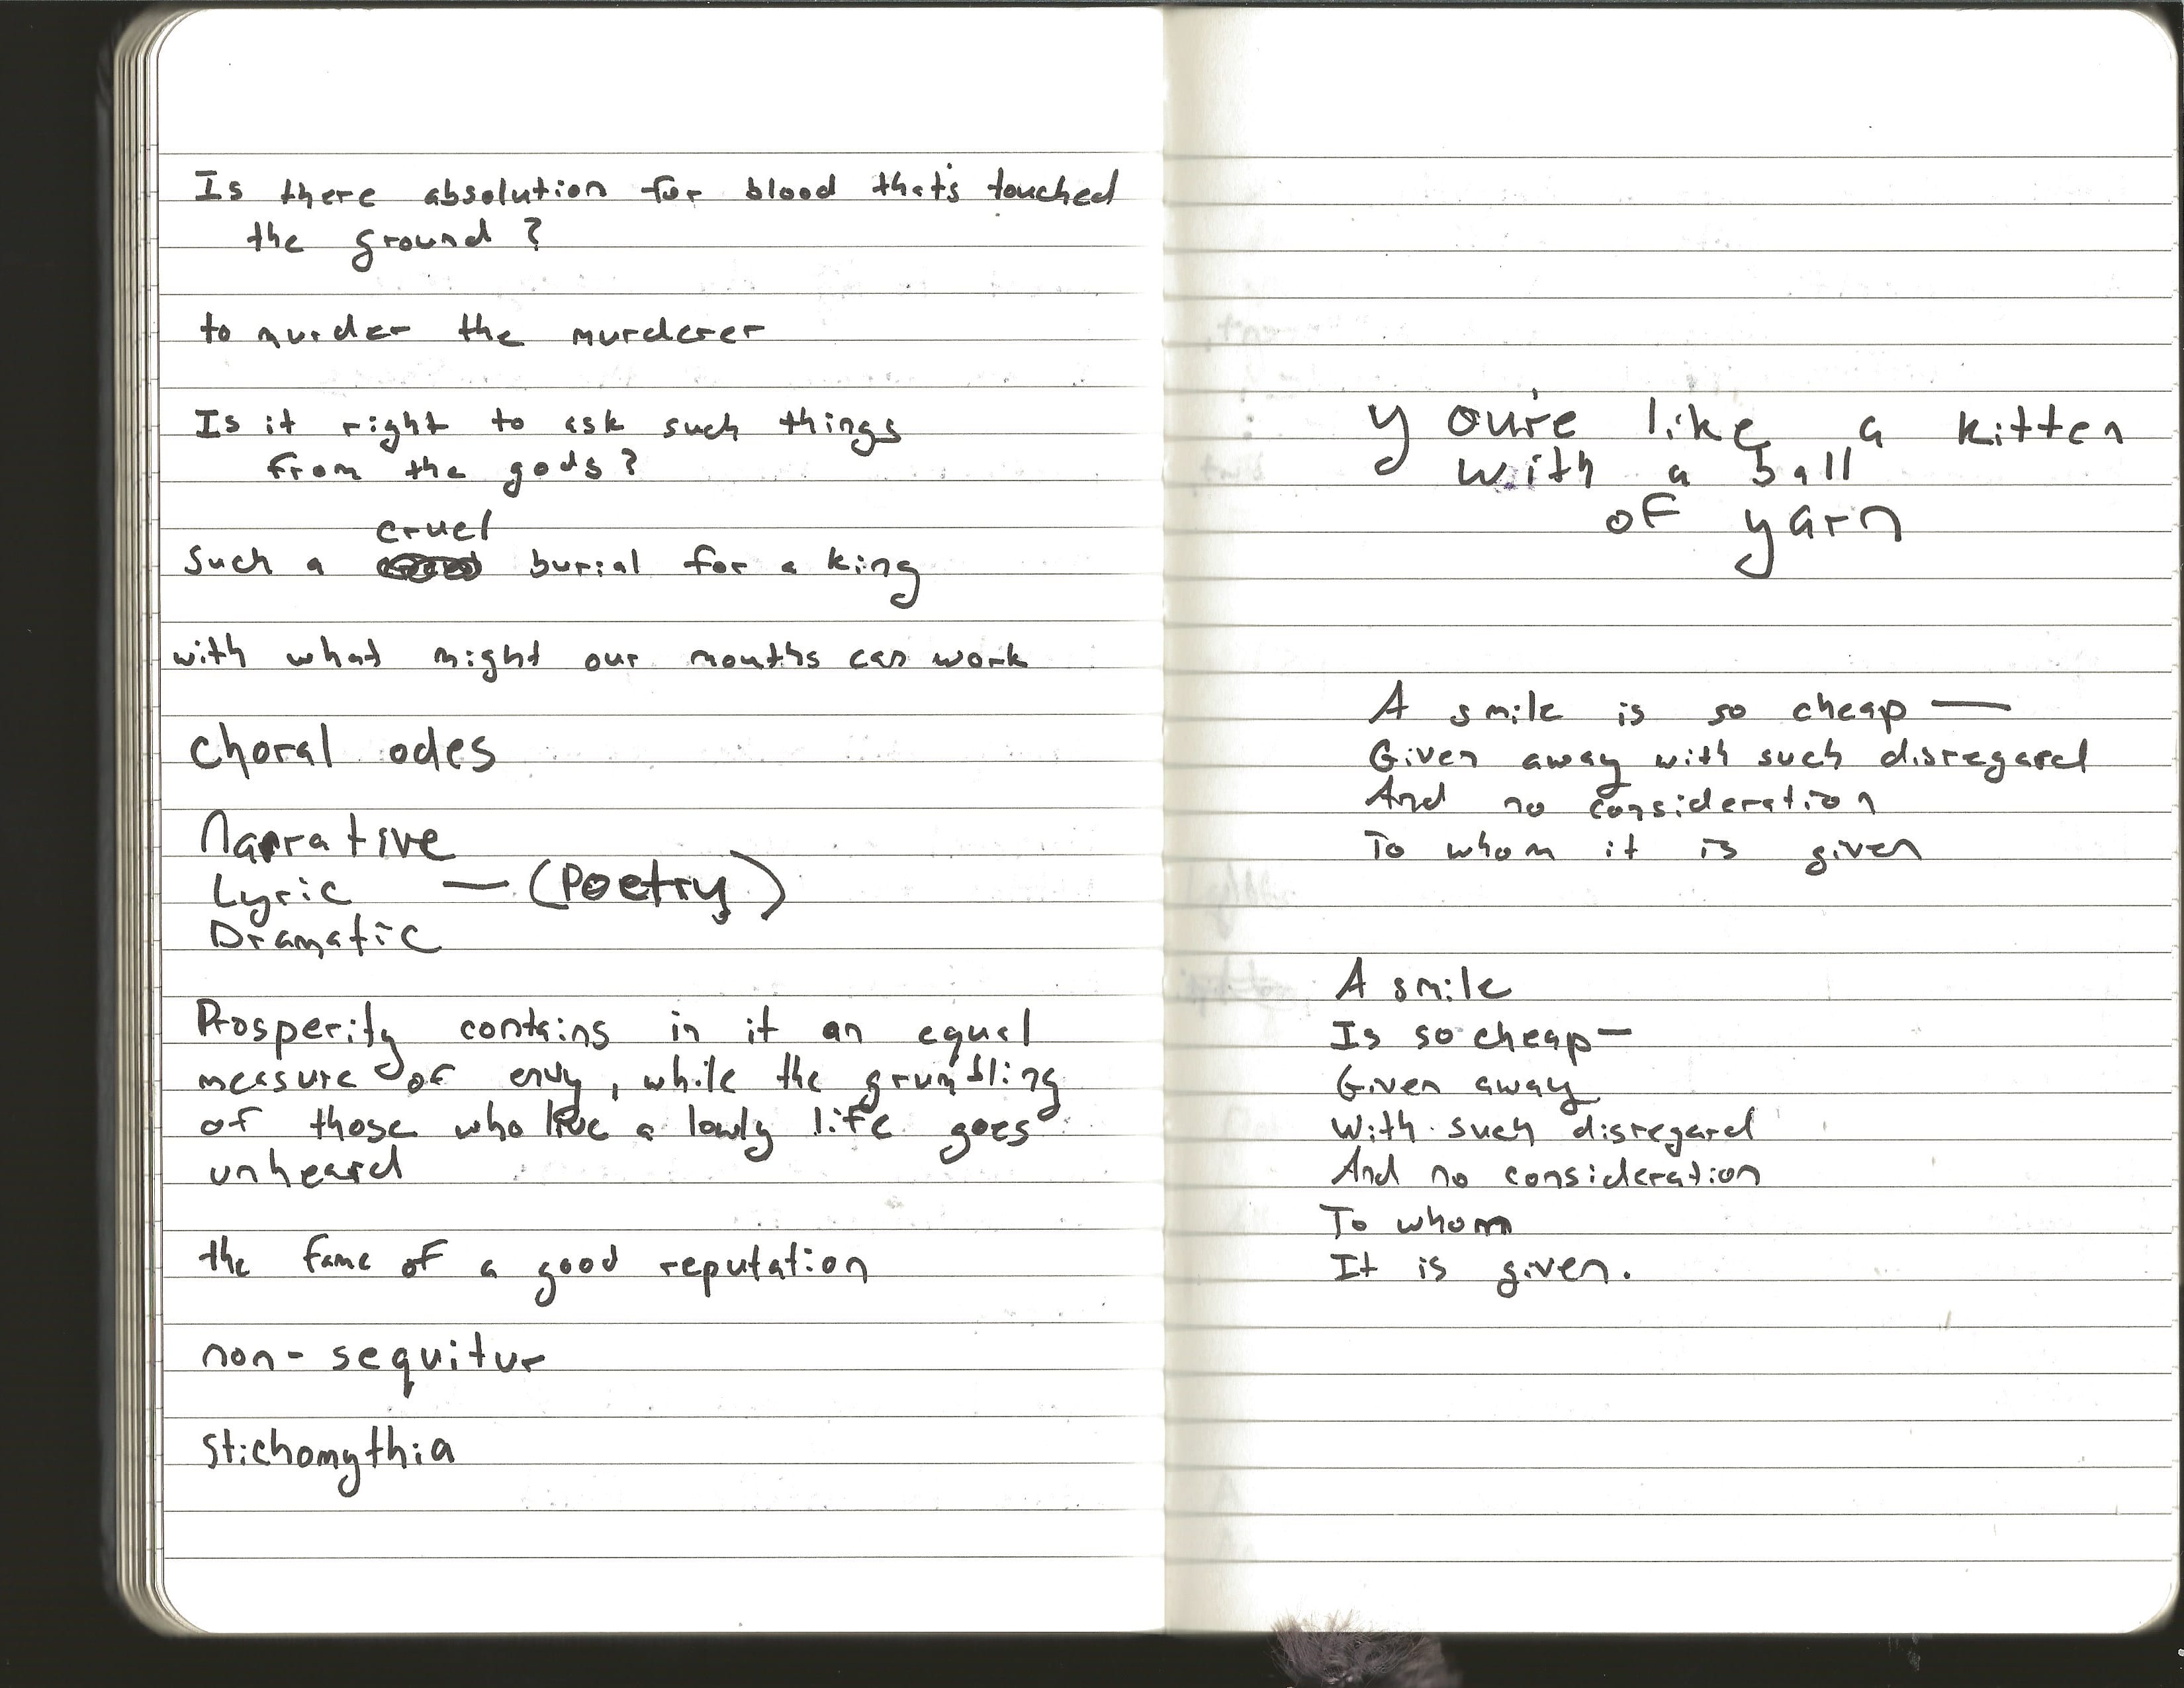 Is there absolution for blood that's touched
the ground?
to murder the murderer
Is it right to ask such things
from the gods?
cruel
Such a burial for a king
with what might our mouths can work
choral odes
Narrative
Lyric — (Poetry)
Dramatic
Prosperity contains in it an equal
measure of envy, while the grumbling
of those who live a lowly life goes
unheard
the fame of a good reputation
non-sequitur
Stichomythia
You're like a kitten
with a ball
of yarn
A smile is so cheap —
Given away with such disregard
And no consideration
To whom it is given
A smile
Is so cheap —
Given away
With such disregard
And no consideration
To whom
It is given.